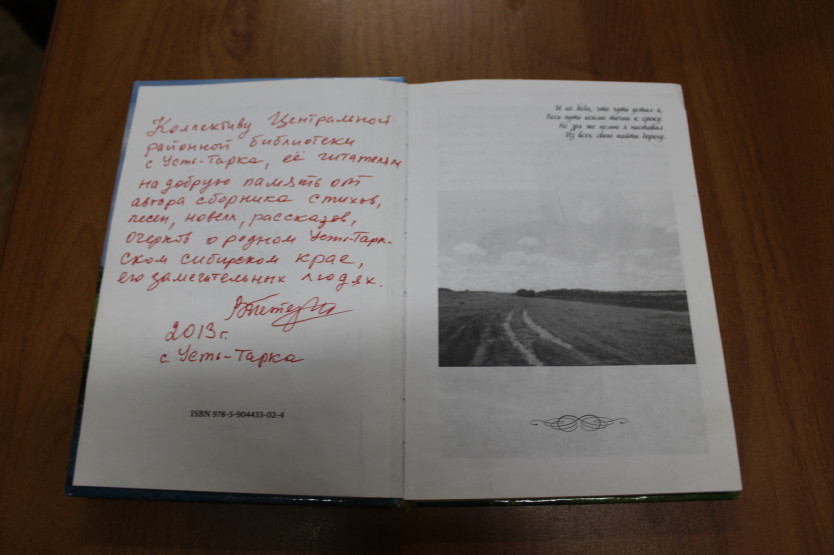 Коллективу Центральной
районной библиотеки
с Усть-Тарка, её читателям
на добрую память от
автора сборника стихов,
песен, новелл, рассказов,
очерков о родном Усть-Тарк-
ском сибирском крае,
его замечательных людях.
2013 г.
с. Усть-Тарка
ISBN 978-5-904433-02-4
И не беда, что чуть устал я,
Весь путь осилю точно к сроку.
Не зря же целью я поставил
Из всех свою найти дорогу.